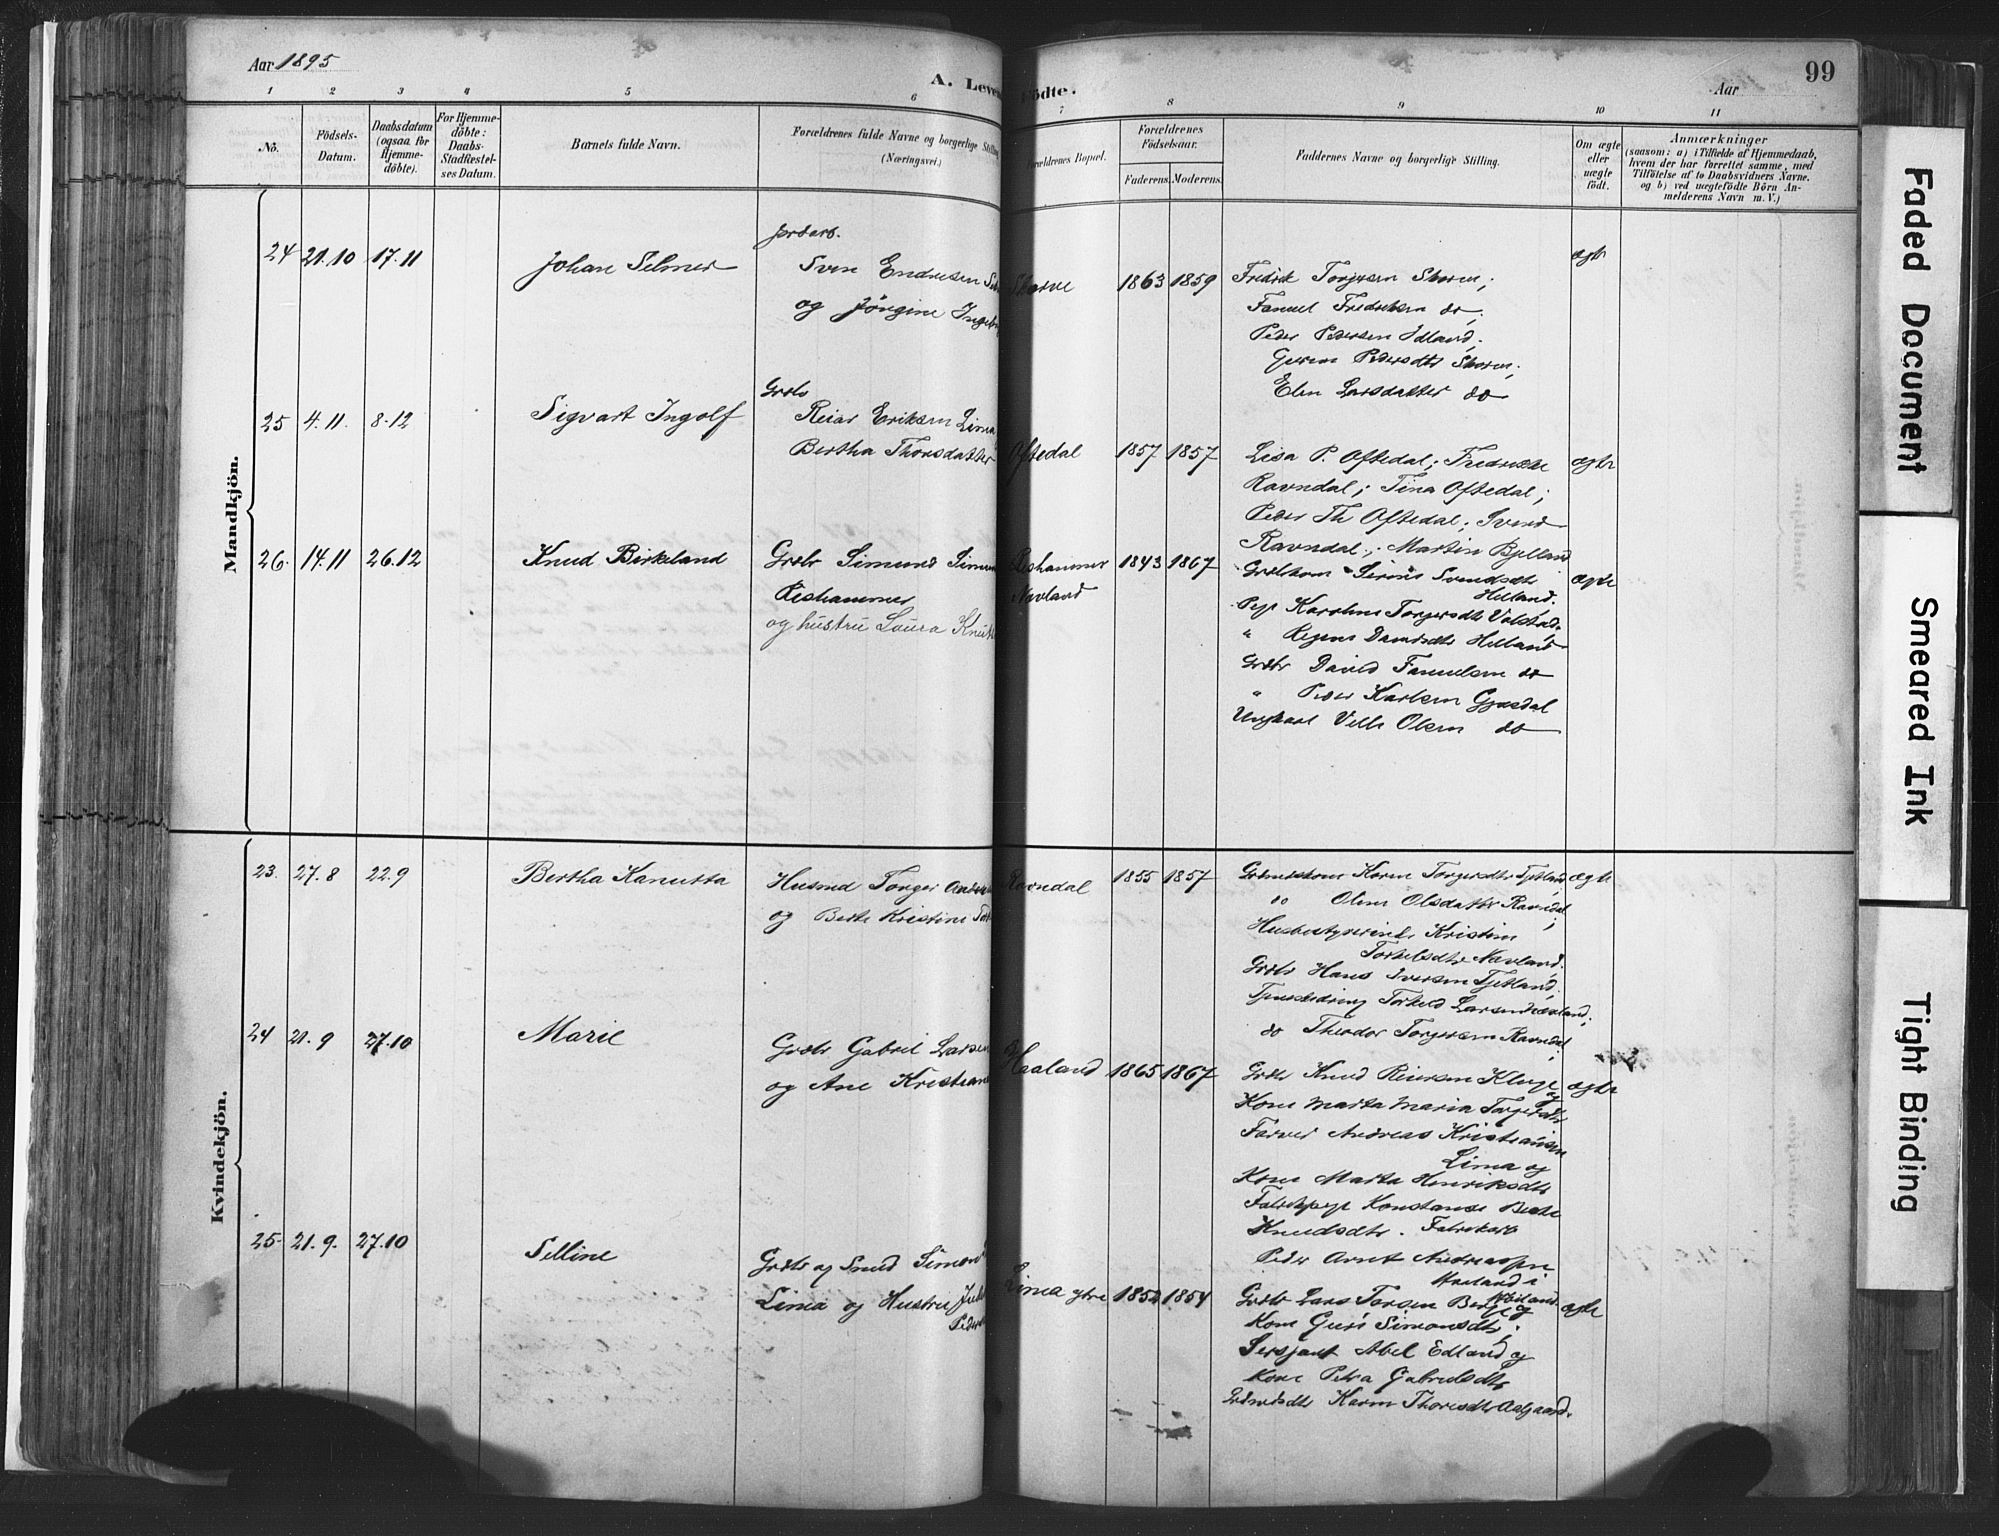 Aar 1895
99
A. Leven
ödte.
Aar
1 2 3 4 5 6 7 8 9 10 11
No.
Födsels-
Datum.
Daabsdatum
(ogsaa for
Hjemme-
döbte).
For Hjemme-
döbte:
Daabs-
Stadfæstel-
ses Datum.
Barnets fulde Navn.
Forældrenes fulde Navne og borgerlige Stilling
(Næringsvei.)
Forældrenes Bopæl.
Forældrenes
Födselsaar.
Faderens. Moderens.
Faddernes Navne og borgerlige Stilling.
Om ægte
eller
uægte
födt.
Anmærkninger
(saasom: a) i Tilfælde af Hjemmedaab,
hvem der har forrettet samme, med
Tilföielse af to Daabsvidners Navne,
og b) ved uægtefödte Börn An-
melderens Navn m. V.)
Mandkjön.
24 21.10 17.11 Johan Selmer
Jordarb.
Sven Endresen
og Jörgine Ingeb
Skorve 1863 1859
Fredrik Torgersen Skorve;
Fanuel Fredriksen do;
Peder Pedersen Idland;
Pedersdtr Skorve;
Elen Larsdatter do
ægte
25 4.11. 8.12 Sigvart Ingolf
Grdbr
Reiar Eriksen Lima
Bertha Thorsdatter
Oftedal 1857 1857
Lisa P. Oftedal; Fredrikke
Ravndal; Tina Oftedal;
Peder Th Oftedal; Sverd
Ravndal; Martin Bjelland
ægte
26. 14.11 26.12 Knud Birkeland
Grdbr Simund Simun
Rishammer
og hustru Laura Knut
Rishammer
Nævland
1843 1867
Grdbrkone Sirine Svendsdtr
Helland.
Pige Karoline Torgersdtr Valstad
" Regine Davidsdtr Helland
Grdbr David Fanuelsen do
" Peder Karlsen Gjesdal
Ungkarl Olsen do
ægte
Kvindekjön.
23. 27.8 22.9 Bertha Kanutta
Husmd Torger Andr
og Berte Kristine Tor
Ravndal 1855 1857
Grdmdskone Karen Torgersdtr Tjetland
do Olene Olsdatter Ravndal;
Husbestyrerinde Kristine
Torkelsdtr Nævland.
Grdbr Hans Iversen Tjetland;
Tjenestedreng Torkild Larsen Nævland;
do Theodor Torgersen Ravndal;
ægte
24 21.9 27.10 Marie
Grdbr Gabriel Larsen
og Ane Kristiane
Haaland 1865 1867
Grdbr Knud Reiersen Kluge og
Kone Marta Maria Torgersdtr
Farver Andreas Kristiansen
Lima og
Kone Marta Henriksdtr
Fabrikpige Konstanse Berte
Knudsdtr. Fabrikarb
Peder Arnt Andreassen
Haaland i
Höiland.
ægte
25 21.9. 27.10 Selline
Grdbr og Smed Simon
Lima og Hustru
Peders
Lima ytre 1852 1854
Grdbr Lars Torsen Berge og
Kone Guri Simonsdtr;
Sersjant Abel Edland og
Kone Petra Gabrielsdtr
Grdmdsdtr Karen Thoresdtr Aalgaard.
ægte
Faded Document
Smeared Ink
Tight Binding